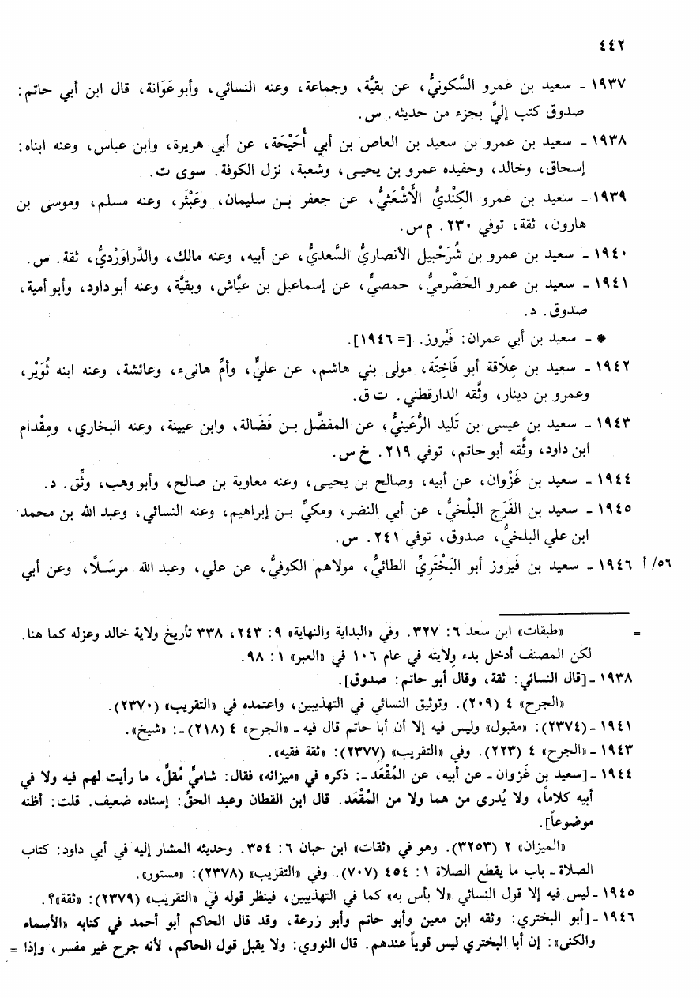 ٤٤٢
١٩٣٧ - سعيد بن عمرو السَّكونيُّ، عن بقيَّة، وجماعة، وعنه النسائي، وأبو عَوَانة، قال ابن أبي حاتم:
صدوق كتب إليَّ بجزء من حديثه. س.
١٩٣٨ - سعيد بن عمرو بن سعيد بن العاص بن أبي أُحَيْحَة، عن أبي هريرة، وابن عباس، وعنه ابناه:
إسحاق، وخالد، وحفيده عمرو بن يحيى، وشعبة، نزل الكوفة. سوى ت.
١٩٣٩ - سعيد بن عمرو الكِنْديُّ الأَشْعَثيُّ، عن جعفر بن سليمان، وعَبْثَر، وعنه مسلم، وموسى بن
هارون، ثقة، توفي ٢٣٠. م س.
١٩٤٠ - سعيد بن عمرو بن شُرَحْبيل الأنصاريُّ السَّعديُّ، عن أبيه، وعنه مالك، والدَّراوَرْديُّ، ثقة. س.
١٩٤١ - سعيد بن عمرو الحَضْرميُّ، حمصيٌّ، عن إسماعيل بن عيَّاش، وبقيَّة، وعنه أبو داود، وأبو أمية،
صدوق. د.
* - سعيد بن أبي عمران: فَيْروز. [= ١٩٤٦].
١٩٤٢ - سعيد بن عِلاقة أبو فَاخِتَة، مولى بني هاشم، عن عليٍّ، وأمِّ هانىء، وعائشة، وعنه ابنه ثُوَيْر،
وعمرو بن دينار، وثَّقه الدارقطني. ت ق.
١٩٤٣ - سعيد بن عيسى بن تَليد الرُّعَينيُّ، عن المفضَّل بن فَضَالة، وابن عيينة، وعنه البخاري، ومِقْدام
ابن داود، وثَّقه أبو حاتم، توفي ٢١٩. خ س.
١٩٤٤ - سعيد بن غَزْوان، عن أبيه، وصالح بن يحيى، وعنه معاوية بن صالح، وأبو وهب، وثِّق. د.
١٩٤٥ - سعيد بن الفَرَج البلْخيُّ، عن أبي النضر، ومكيِّ بن إبراهيم، وعنه النسائي، وعبد الله بن محمد
ابن علي البلخيُّ، صدوق، توفي ٢٤١. س.
٥٦/أ ١٩٤٦ - سعيد بن فيروز أبو البَخْتَريِّ الطائيُّ، مولاهم الكوفيُّ، عن علي، وعبد الله مرسَلًا، وعن أبي
= «طبقات» ابن سعد ٦: ٣٢٧. وفي «البداية والنهاية» ٩: ٢٤٣، ٣٣٨ تأريخ ولاية خالد وعزله كما هنا.
لكن المصنف أدخل بدء ولايته في عام ١٠٦ في «العبر» ١: ٩٨.
١٩٣٨ - [قال النسائي: ثقة، وقال أبو حاتم: صدوق].
«الجرح» ٤ (٢٠٩). وتوثيق النسائي في التهذيبين، واعتمده في «التقريب» (٢٣٧٠).
١٩٤١ - (٢٣٧٤): «مقبول» وليس فيه إلا أن أبا حاتم قال فيه - «الجرح» ٤ (٢١٨) -: «شيخ».
١٩٤٣ - «الجرح» ٤ (٢٢٣). وفي «التقريب» (٢٣٧٧): «ثقة فقيه».
١٩٤٤ - [سعيد بن غزوان - عن أبيه، عن المُقْعَد -: ذكره في «ميزانه» فقال: شاميٌّ مُقلٌّ، ما رأيت لهم فيه ولا في
أبيه كلاماً، ولا يُدرى من هما ولا من المُقْعَد. قال ابن القطان وعبد الحقّ: إسناده ضعيف. قلت: أظنه
موضوعاً].
«الميزان» ٢ (٣٢٥٣). وهو في «ثقات» ابن حبان ٦: ٣٥٤. وحديثه المشار إليه في أبي داود: كتاب
الصلاة - باب ما يقطع الصلاة ١: ٤٥٤ (٧٠٧). وفي «التقريب» (٢٣٧٨): «مستور».
١٩٤٥ - ليس فيه إلا قول النسائي «لا بأس به» كما في التهذيبين، فينظر قوله في «التقريب» (٢٣٧٩): «ثقة»؟.
١٩٤٦ - [أبو البختري: وثقه ابن معين وأبو حاتم وأبو زرعة، وقد قال الحاكم أبو أحمد في كتابه «الأسماء
والكنى»: إن أبا البختري ليس قوياً عندهم. قال النووي: ولا يقبل قول الحاكم، لأنه جرح غير مفسر، وإذا =